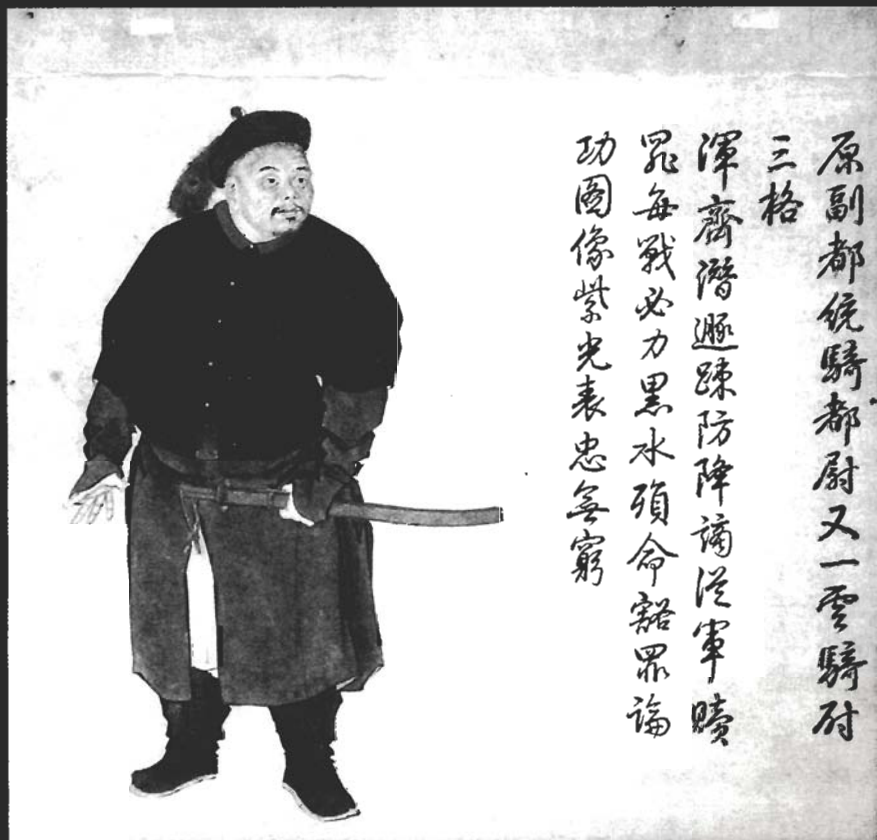 原副都統騎都尉又一雲騎尉
三格
渾齊潛遯踈防降謫從軍贖
罪每戰必力黑水殞命豁罪論
功圖像紫光表忠無窮